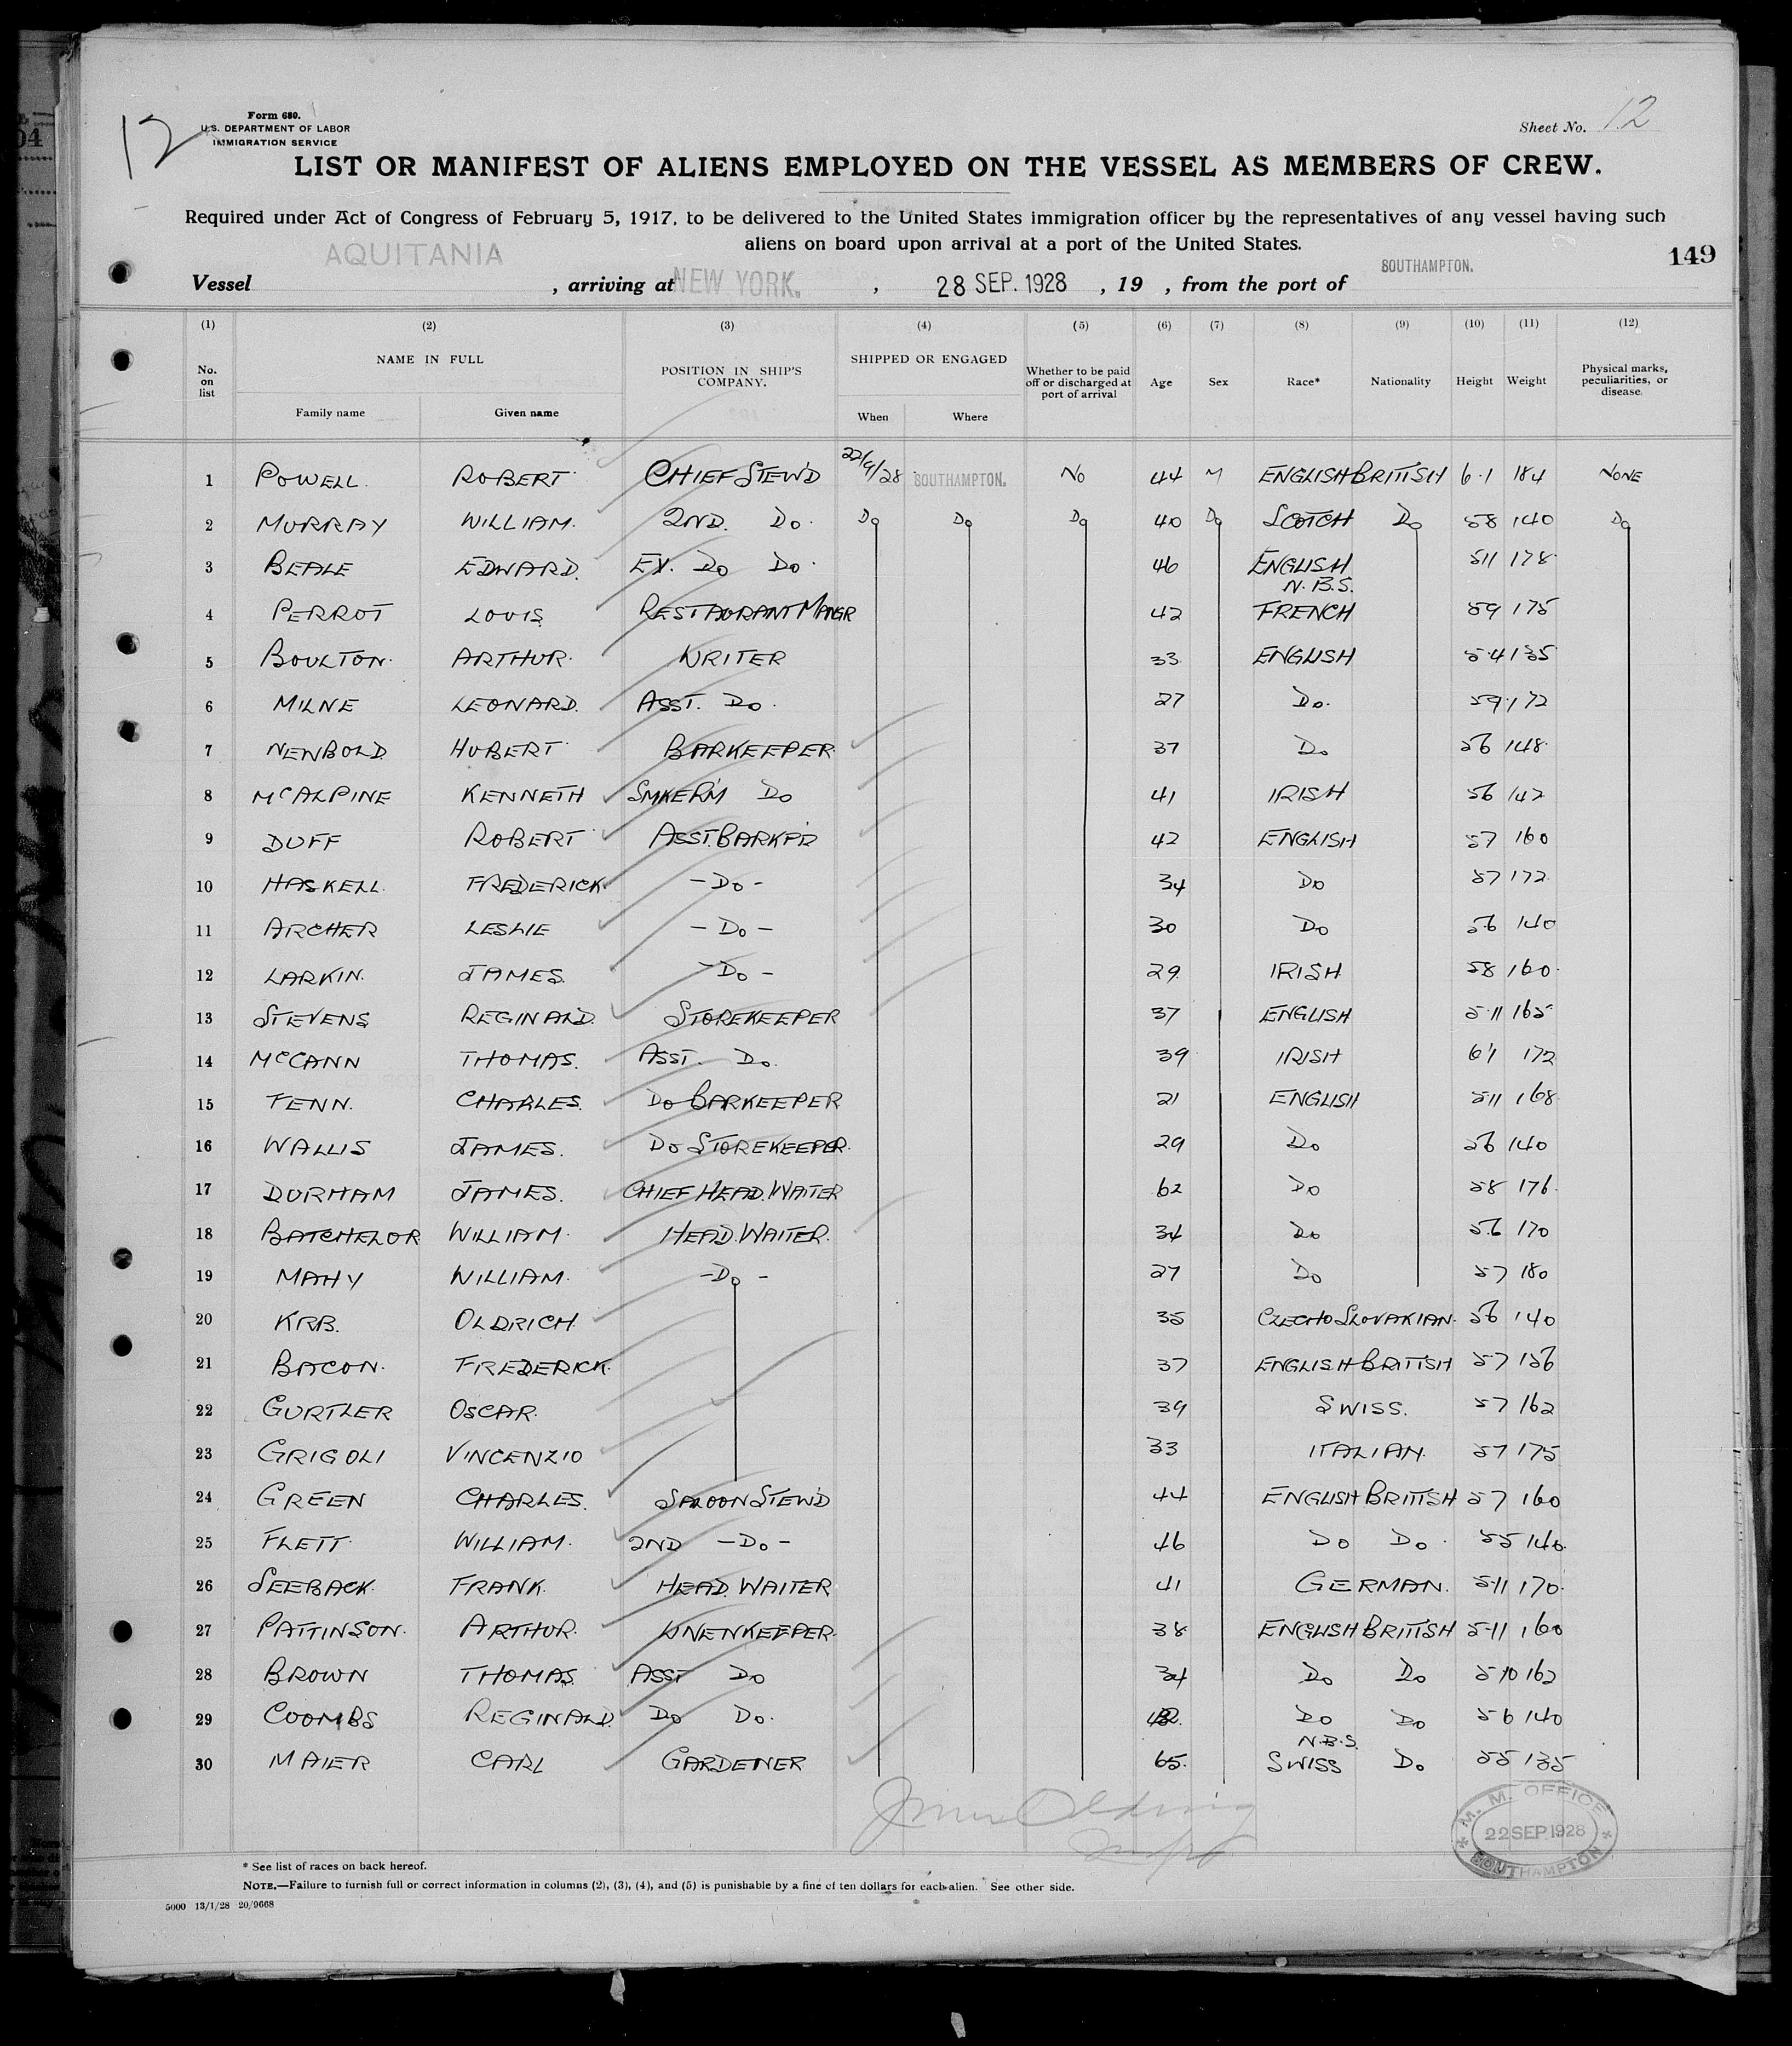 12
Form 680.
U.S. DEPARTMENT OF LABOR
IMMIGRATION SERVICE
Sheet No. 12
LIST OR MANIFEST OF ALIENS EMPLOYED ON THE VESSEL AS MEMBERS OF CREW.
Required under Act of Congress of February 5, 1917, to be delivered to the United States immigration officer by the representatives of any vessel having such
aliens on board upon arrival at a port of the United States.
149
Vessel AQUITANIA , arriving at NEW YORK. , 28 SEP. 1928 , 19 , from the port of SOUTHAMPTON.
(1) (2) (3) (4) (5) (6) (7) (8) (9) (10) (11) (12)
No. on list NAME IN FULL POSITION IN SHIP'S COMPANY. SHIPPED OR ENGAGED Whether to be paid off or discharged at port of arrival Age Sex Race* Nationality Height Weight Physical marks, peculiarities, or disease
Family name Given name When Where
1 POWELL. ROBERT CHIEF STEW'D 22/9/28 SOUTHAMPTON. NO 44 M ENGLISH BRITISH 6.1 184 NONE
2 MURRAY WILLIAM. 2ND. DO. DO DO DO 40 DO SCOTCH DO 58 140 DO
3 BEALE EDWARD. EX. DO DO. 46 ENGLISH 511 178
N.B.S.
4 PERROT LOUIS RESTAURANT MANGR 42 FRENCH 59 175
5 BOULTON. ARTHUR. WRITER 33 ENGLISH 5.4 135
6 MILNE LEONARD. ASST. DO. 27 DO. 59 172
7 NEWBOLD HUBERT BARKEEPER 37 DO 56 148
8 McALPINE KENNETH SMKERM DO 41 IRISH 56 142
9 DUFF ROBERT ASST. BARKP'R 42 ENGLISH 57 160
10 HASKELL FREDERICK. -DO- 34 DO 57 172
11 ARCHER LESLIE -DO- 30 DO 5.6 140
12 LARKIN. JAMES. -DO- 29 IRISH 58 160
13 STEVENS REGINALD. STOREKEEPER 37 ENGLISH 5.11 165
14 McCANN THOMAS. ASST. DO. 39 IRISH 6'1 172
15 FENN. CHARLES. DO BARKEEPER 21 ENGLISH 511 168
16 WALLIS JAMES. DO STOREKEEPER. 29 DO 56 140
17 DURHAM JAMES. CHIEF HEAD. WAITER 62 DO 58 176
18 BATCHELOR WILLIAM. HEAD. WAITER. 34 DO 5.6 170
19 MAHY WILLIAM. -DO- 27 DO 57 180
20 KRB. OLDRICH 35 CZECHO SLOVAKIAN. 56 140
21 BACON. FREDERICK. 37 ENGLISH BRITISH 5.7 156
22 GURTLER OSCAR. 39 SWISS. 57 162
23 GRIGOLI VINCENZIO 33 ITALIAN. 57 175
24 GREEN CHARLES. SALOON STEW'D 44 ENGLISH BRITISH 57 160
25 FLETT WILLIAM. 2ND -DO- 46 DO DO. 55 140
26 SEEBACK. FRANK. HEAD. WAITER 41 GERMAN. 5.11 170
27 PATTINSON. ARTHUR. LINENKEEPER. 38 ENGLISH BRITISH 5.11 160
28 BROWN THOMAS. ASST DO 34 DO DO 5.10 162
29 COOMBS REGINALD. DO DO. DO DO 56 140
N.B.S.
30 MAIER CARL GARDENER 65. SWISS DO. 55 135
M. M. OFFICE
22 SEP. 1928
SOUTHAMPTON
* See list of races on back hereof.
NOTE.—Failure to furnish full or correct information in columns (2), (3), (4), and (5) is punishable by a fine of ten dollars for each alien. See other side.
5000 13/1/28 20/9668